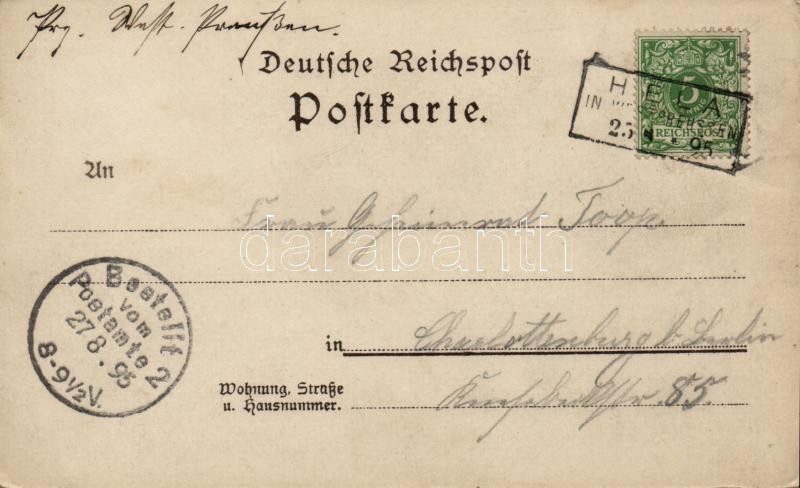 Prz. West. Preußen.
Deutsche Reichspost
Postkarte.
5
REICHSPOST
HELA
IN WESTPREUSSEN
25 8 95
An
Frau Geheimrat
darabanth
Bestellt
vom
Postamte 2
27 8. 95
8-9½V.
in Charlottenburg b. Berlin
Wohnung, Straße
u. Hausnummer.
85.